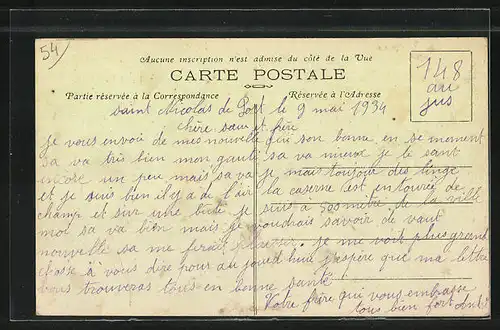 54
Aucune inscription n'est admise du côté de la Vue
CARTE POSTALE
Partie réservée à la Correspondance
Réservée à l'Adresse
148
au
jus
Saint Nicolas de Port le 9 mai 1934
chère sœur et frère
je vous envoi de mes nouvelle qui son bonne en se moment
sa va très bien mon sa va mieux je le sant
encore un peu mais sa va je mais toujour des linge
et je suis bien il y a de l'air la caserne est entourée de
champ et sur une bute je suis à 500 metre de la ville
moi sa va bien mais je voudrais savoir de vaut
nouvelle sa me ferait plaisir. je ne voit plus grant
chose à vous dire pour au jourd'huie j'espère que ma lettre
vous trouveras tous en bonne santé
Votre frère qui vous embrasse
tous bien fort